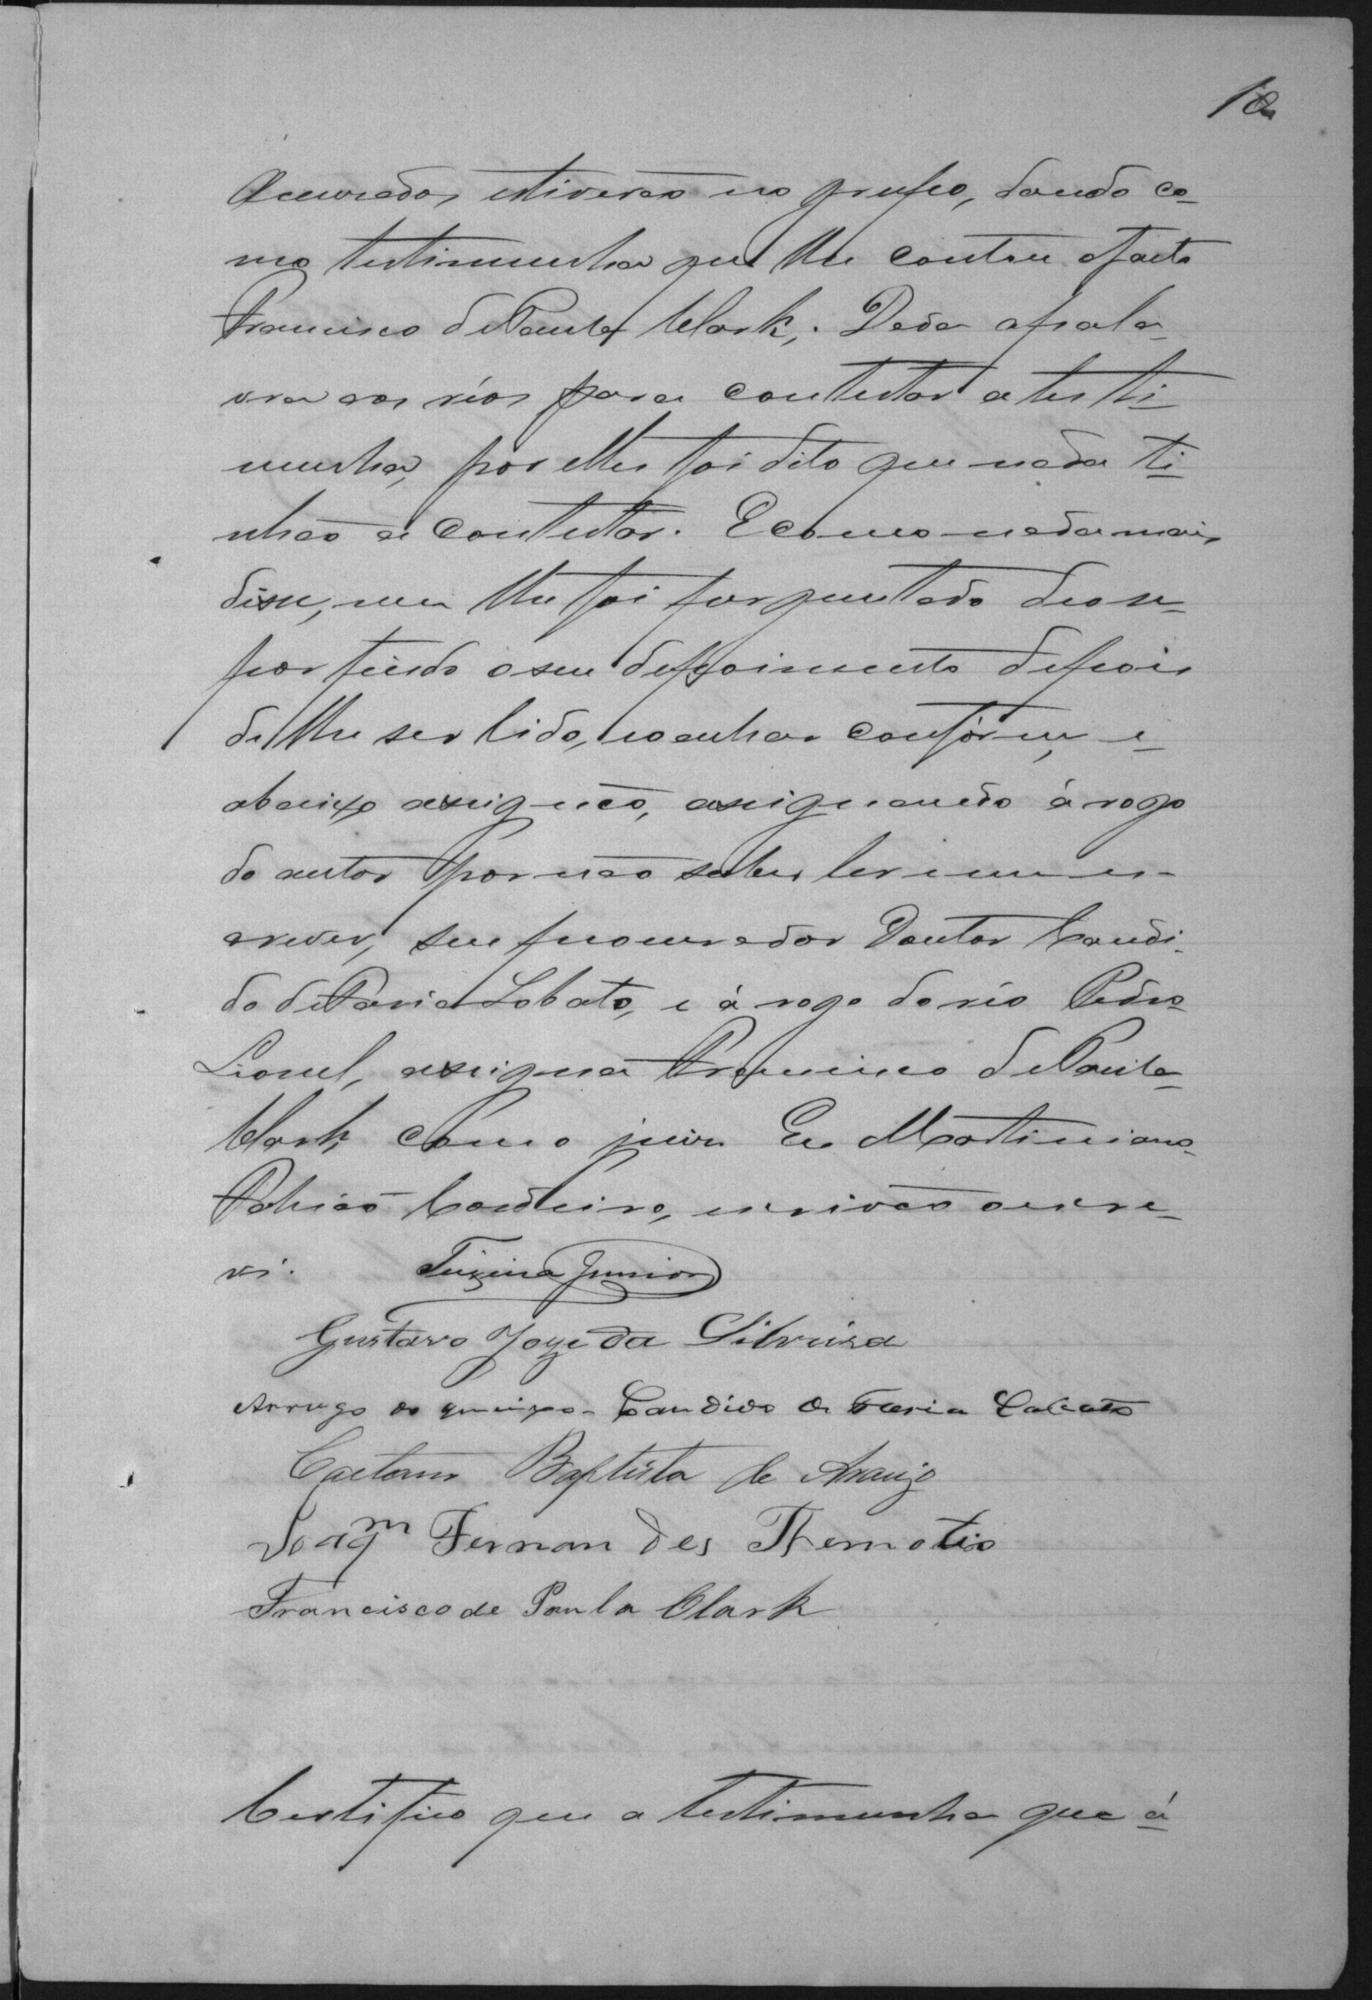 accusados estiverão no grupo, dando co-
mo testimunha que lhe contou o facto
Francisco de Paula Clark,. Dada a pala-
vra aos réos para contestar a testi-
munha, por elles foi dito que nada ti-
nhão a contestar. E como nada mais
disse, nem lhe foi perguntado deo-se
por findo o seu depoimento depois
de lhe ser lido, e o achar conforme, e
abaixo assignão, assignando á rogo
do autor por não saber ler e nem es-
crever, seu procurador Doutor Candi-
do de Faria Lobato, e á rogo do réo Pedro
Lionel, assigna Francisco de Paula
Clark como juiz Eu Martiniano
Cordeiro, escrivão o escre-
vi. Teixeira Junior
Gustavo Joze da Silveira
Arrogo do queixoso Candido de Faria Lobato
Caetano Baptista de Araujo
Joaqm Fernandes Themotio
Francisco de Paula Clark
Certifico que a testimunha que á